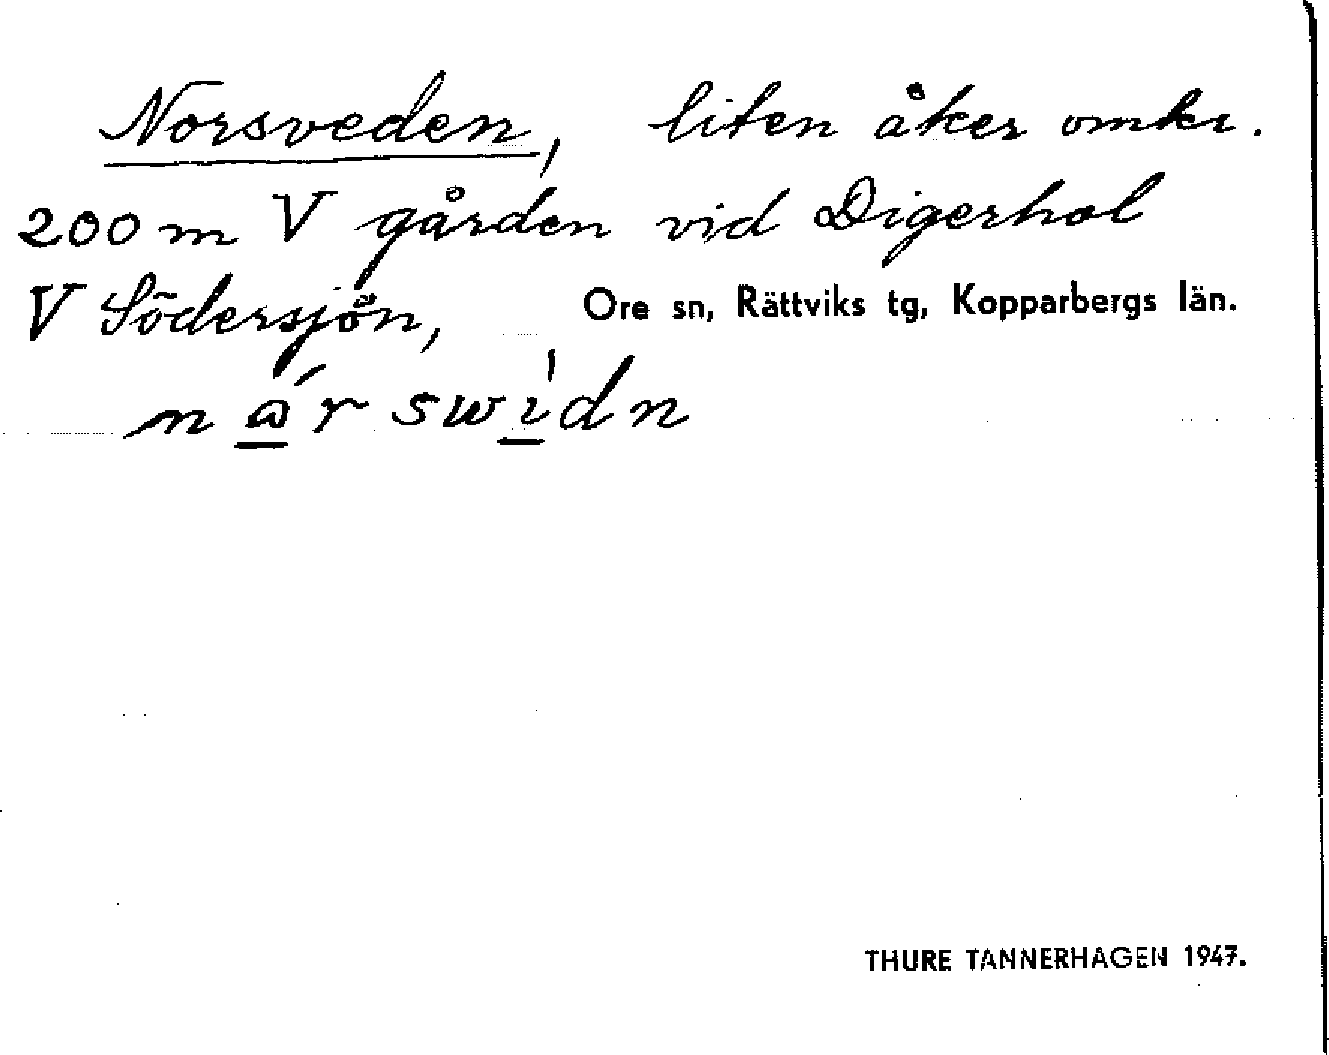 Norsveden, liten åker omkr.
200 m V gården vid Digerhol
V Södersjön, Ore sn, Rättviks tg, Kopparbergs län.
nårswidn
THURE TANNERHAGEN 1947.